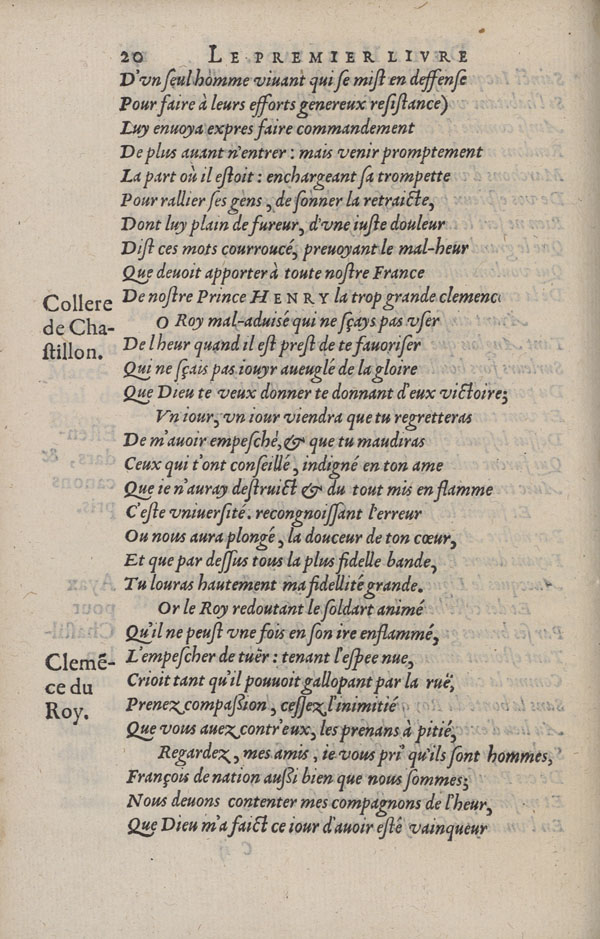 20 LE PREMIER LIVRE
D'vn ſeul homme viuant qui ſe miſt en deffenſe
Pour faire à leurs efforts genereux reſiſtance)
Luy enuoya expres faire commandement
De plus auant n'entrer : mais venir promptement
La part où il eſtoit : enchargeant ſa trompette
Pour rallier ſes gens, de ſonner la retraicte,
Dont luy plain de fureur, d'vne iuſte douleur
Diſt ces mots courroucé, preuoyant le mal-heur
Que deuoit apporter à toute noſtre France
De noſtre Prince HENRY la trop grande clemence
Collere
de Cha-
ſtillon.
O Roy mal-aduisé qui ne ſçays pas vſer
De l'heur quand il eſt preſt de te fauoriſer
Qui ne ſçais pas iouyr aueuglé de la gloire
Que Dieu te veux donner te donnant d'eux victoire;
Vn iour, vn iour viendra que tu regretteras
De m'auoir empeſché, & que tu maudiras
Ceux qui t'ont conſeillé, indigné en ton ame
Que ie n'auray deſtruict & du tout mis en flamme
C'eſte vniuerſité. recongnoiſſant l'erreur
Ou nous aura plongé, la douceur de ton cœur,
Et que par deſſus tous la plus fidelle bande,
Tu louras hautement ma fidellité grande.
Or le Roy redoutant le ſoldart animé
Qu'il ne peuſt vne fois en ſon ire enflammé,
L'empeſcher de tuër : tenant l'eſpee nue,
Clemẽ-
ce du
Roy.
Crioit tant qu'il pouuoit gallopant par la ruë,
Prenez compaſſion, ceſſez l'inimitié
Que vous auez contr'eux, les prenans à pitié,
Regardez, mes amis, ie vous pri' qu'ils ſont hommes,
François de nation auſſi bien que nous ſommes;
Nous deuons contenter mes compagnons de l'heur,
Que Dieu m'a faict ce iour d'auoir eſté vainqueur